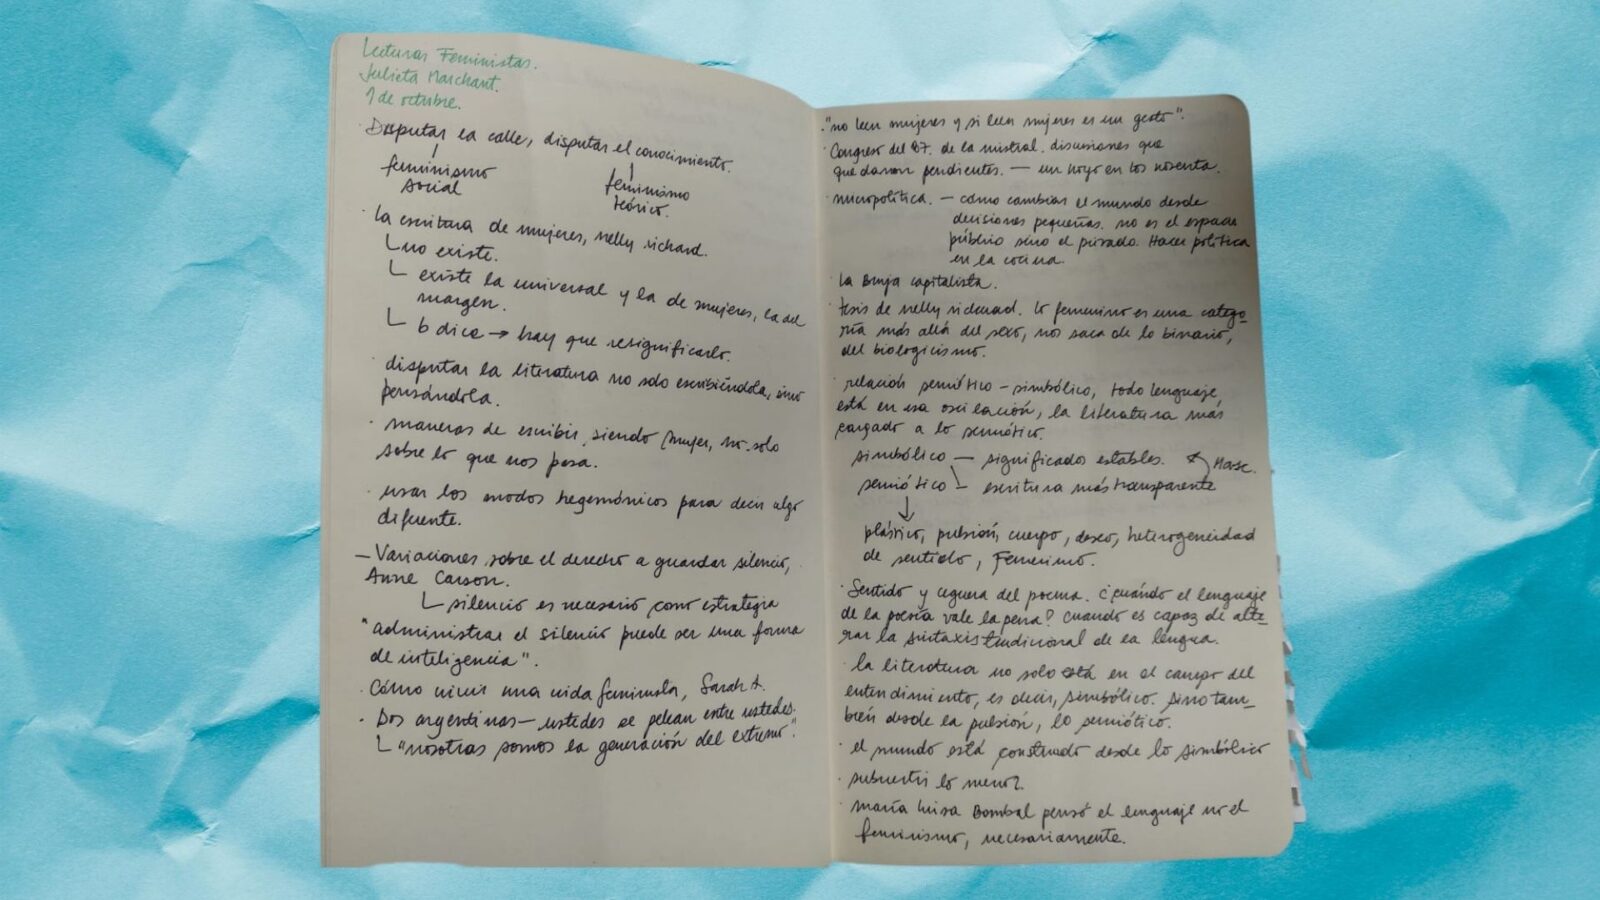 Lecturas Feministas.
Julieta Marchant.
1 de octubre.
Disputar la calle, disputar el conocimiento.
feminismo
social
feminismo
teórico.
· la escritura de mujeres, nelly richard.
no existe.
existe la universal y la de mujeres, la del
margen.
dice → hay que resignificarlo.
· disputar la literatura no solo escribiéndola, sino
pensándola.
· maneras de escribir, siendo mujer, no solo
sobre lo que nos pasa.
· usar los modos hegemónicos para decir algo
diferente.
— Variaciones sobre el derecho a guardar silencio,
Anne Carson.
silencio es necesario como estrategia
"administrar el silencio puede ser una forma
de inteligencia".
· Cómo vivir una vida feminista, Sarah A.
· Dos argentinas — ustedes se pelean entre ustedes.
"nosotras somos la generación del extremo".
· "no leen mujeres y si leen mujeres es un gesto".
· Congreso del 87. de la mistral. discusiones que
quedaron pendientes. — un hoyo en los noventa.
· micropolítica. — cómo cambiar el mundo desde
decisiones pequeñas. no es el espacio
público sino el privado. Hacer política
en la cocina.
· la Bruja capitalista.
· tesis de nelly richard. lo femenino es una catego-
ría más allá del sexo, nos saca de lo binario,
del biologicismo.
· relación semiótico - simbólico, todo lenguaje,
está en esa oscilación, la literatura más
cargado a lo semiótico.
simbólico — significados estables. Masc.
semiótico — escritura más transparente
plástico, pulsión, cuerpo, deseo, heterogeneidad
de sentido, Femenino.
· Sentido y ceguera del poema. ¿cuándo el lenguaje
de la poesía vale la pena? cuando es capaz de alte-
rar la sintaxis tradicional de la lengua.
· la literatura no solo está en el campo del
entendimiento, es decir, simbólico. sino tam-
bién desde la pulsión, lo semiótico.
· el mundo está construido desde lo simbólico
· subvertir lo menor.
· maría luisa Bombal pensó el lenguaje no el
feminismo, necesariamente.